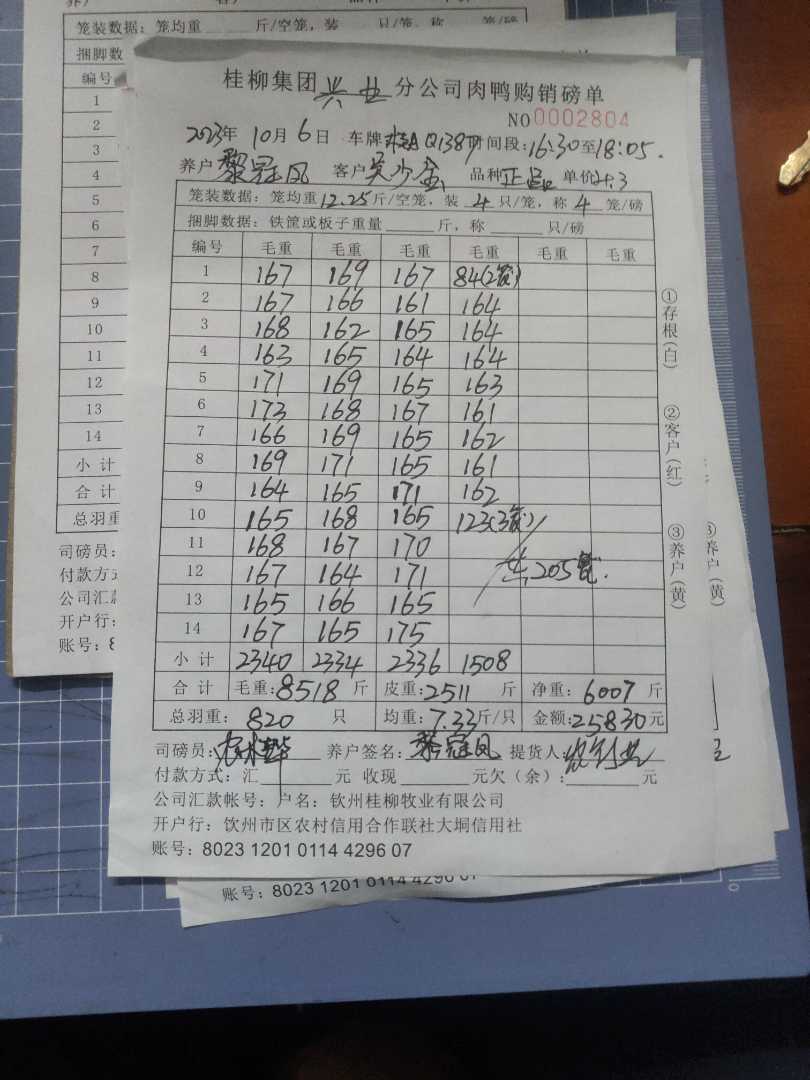 笼装数据:笼均重 斤/空笼,装 只/笼,称 笼/磅
捆脚数
编号
1
2
3
4
5
6
7
8
9
10
11
12
13
14
小 计
合 计
总羽重
司磅员:
付款方式
公司汇款
开户行:
账号:8
桂柳集团 兴业 分公司肉鸭购销磅单
NO 0002804
2023年 10月 6日 车牌 桂A Q138 时间段:16:30至18:05.
养户 黎冠凤 客户 品种 正品 单价 4.3
笼装数据:笼均重12.25斤/空笼,装 4 只/笼,称 4 笼/磅
捆脚数据:铁筐或板子重量 斤,称 只/磅
编号 毛重 毛重 毛重 毛重 毛重 毛重
1 167 169 167 84(2笼)
2 167 166 161 164
3 168 162 165 164
4 163 165 164 164
5 171 169 165 163
6 173 168 167 161
7 166 169 165 162
8 169 171 165 161
9 164 165 171 162
10 165 168 165 123(3笼)
11 168 167 170
12 167 164 171 共205笼.
13 165 166 165
14 167 165 175
小 计 2340 2334 2336 1508
合 计 毛重:8518斤 皮重:2511 斤 净重:6007斤
总羽重: 820 只 均重:7.33斤/只 金额:25830元
司磅员: 养户签名:黎冠凤 提货人:
付款方式:汇 元 收现 元欠(余): 元
公司汇款帐号:户名:钦州桂柳牧业有限公司
开户行:钦州市区农村信用合作联社大垌信用社
账号:8023 1201 0114 4296 07
①存根(白)
②客户(红)
③养户(黄)
③养户(黄)
账号:8023 1201 0114 4296 07